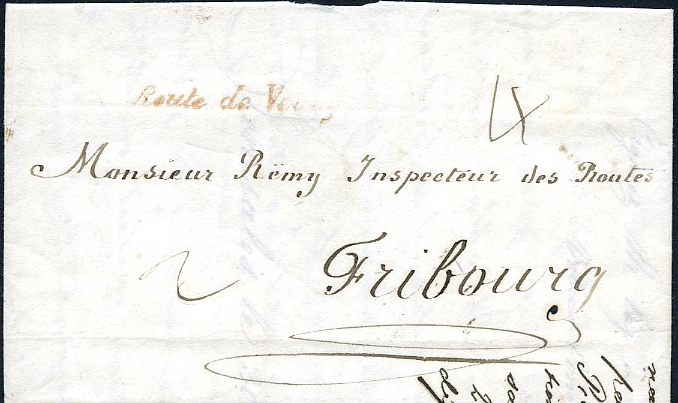 Route de Vevey
4
Monsieur Rëmy Inspecteur des Routes
Fribourg